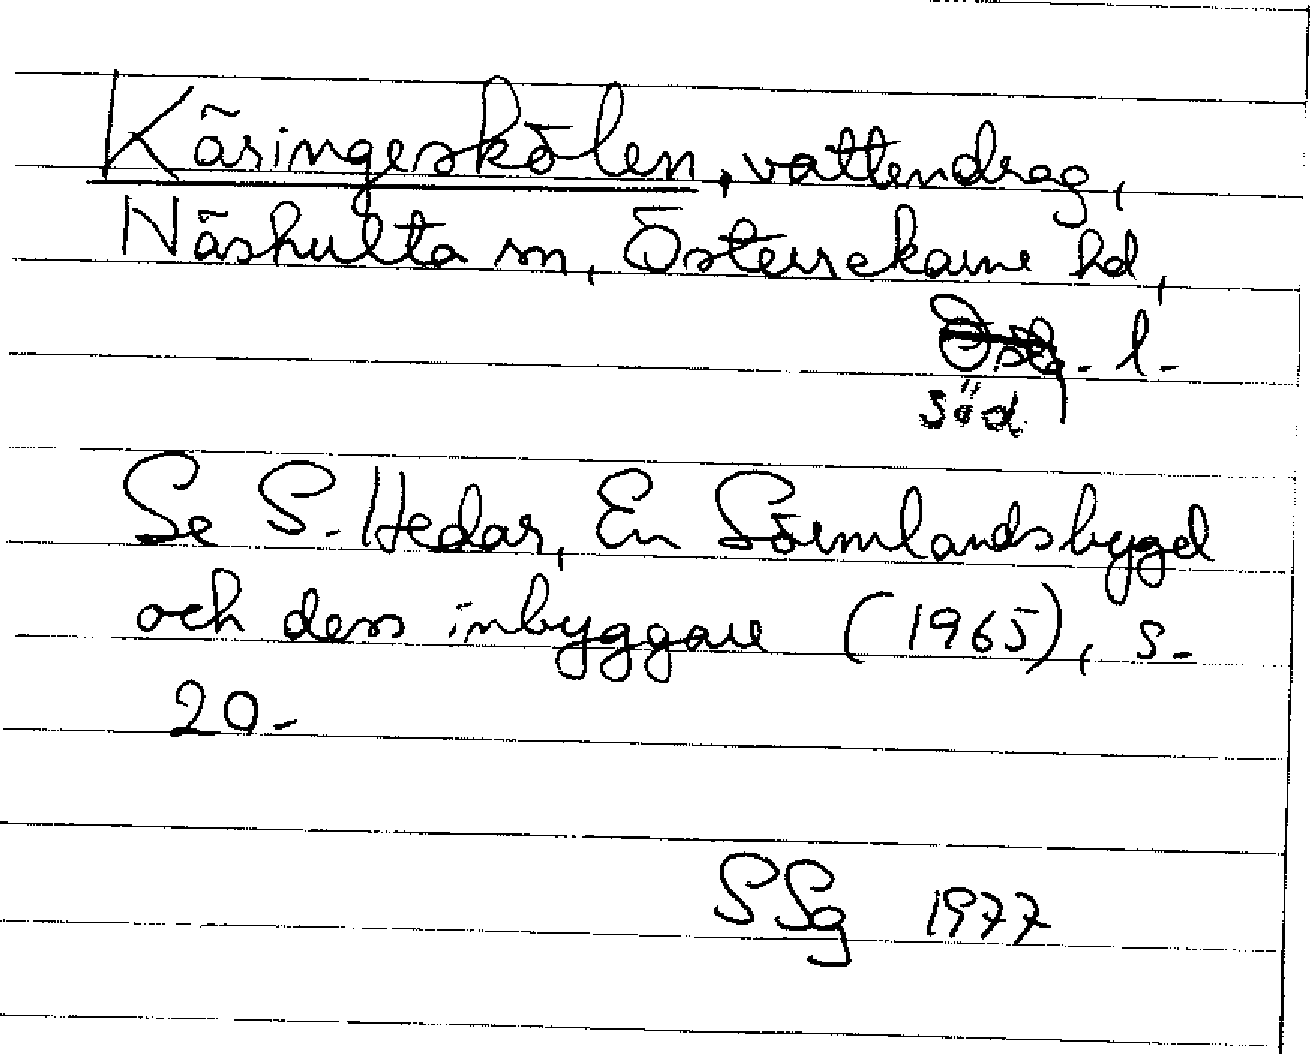 Käringeskölen, vattendrag,
Näshulta sn, Österrekarne hd,
Östg. l.
Söd.
Se S. Hedar, En Sörmlandsbygd
och dess inbyggare (1965), s.
20.
SSg 1977